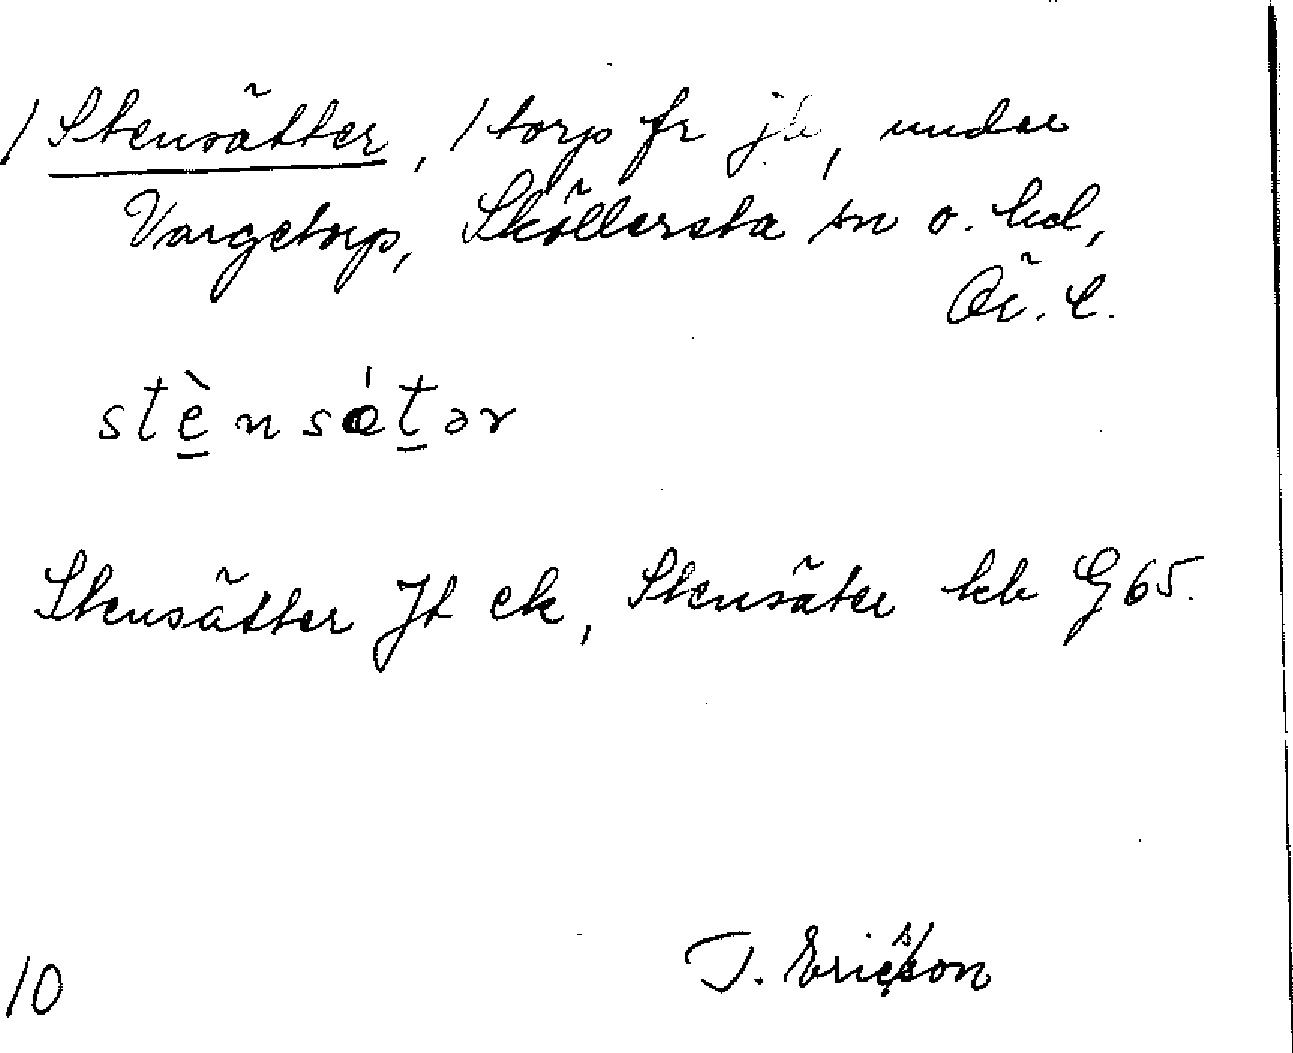 / Stensätter, / torp fr jb, under
Vargetorp, Sköllersta sn o. hd,
Ör. l.
stè̱nsæ̍ṯər
Stensätter Jt ek, Stensäter kb G 65.
T. Ericsson
10